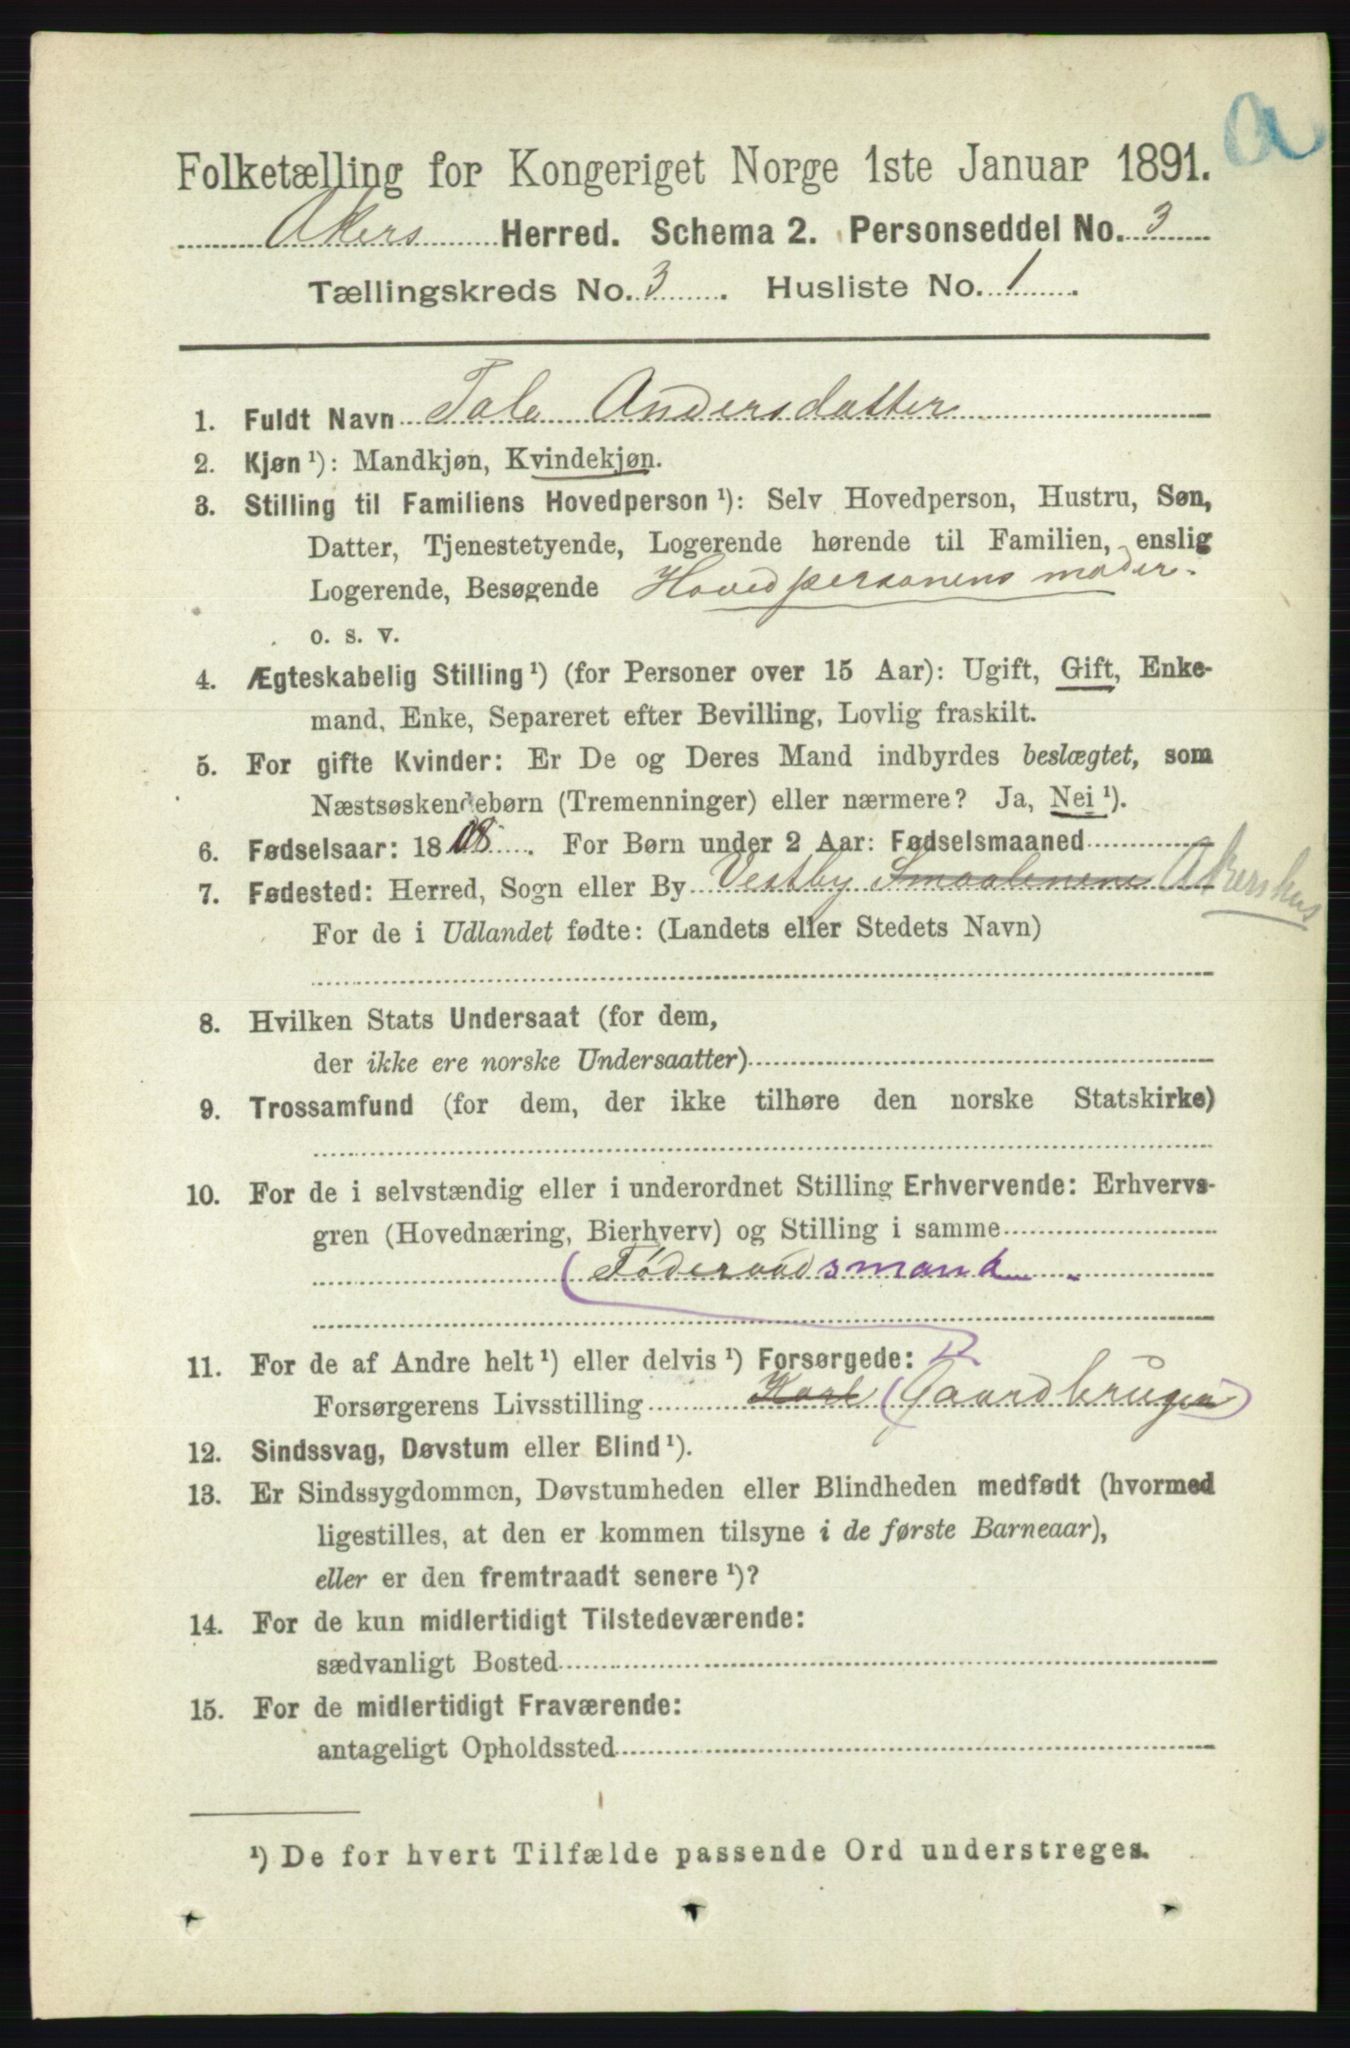 a
Folketælling for Kongeriget Norge 1ste Januar 1891.
Akers Herred. Schema 2. Personseddel No. 3
Tællingskreds No. 3. Husliste No. 1.
1. Fuldt Navn Tale Andersdatter
2. Kjøn ¹): Mandkjøn, Kvindekjøn.
3. Stilling til Familiens Hovedperson ¹): Selv Hovedperson, Hustru, Søn,
Datter, Tjenestetyende, Logerende hørende til Familien, enslig
Logerende, Besøgende Hovedpersonens moder.
o. s. v.
4. Ægteskabelig Stilling ¹) (for Personer over 15 Aar): Ugift, Gift, Enke-
mand, Enke, Separeret efter Bevilling, Lovlig fraskilt.
5. For gifte Kvinder: Er De og Deres Mand indbyrdes beslægtet, som
Næstsøskendebørn (Tremenninger) eller nærmere? Ja, Nei ¹).
6. Fødselsaar: 1808. For Børn under 2 Aar: Fødselsmaaned
7. Fødested: Herred, Sogn eller By Vestby Smaalenene Akershus
For de i Udlandet fødte: (Landets eller Stedets Navn)
8. Hvilken Stats Undersaat (for dem,
der ikke ere norske Undersaatter)
9. Trossamfund (for dem, der ikke tilhøre den norske Statskirke)
10. For de i selvstændig eller i underordnet Stilling Erhvervende: Erhvervs-
gren (Hovednæring, Bierhverv) og Stilling i samme
(Føderaadsmand.
11. For de af Andre helt ¹) eller delvis ¹) Forsørgede:
Forsørgerens Livsstilling (Gaardbruger)
12. Sindssvag, Døvstum eller Blind ¹).
13. Er Sindssygdommen, Døvstumheden eller Blindheden medfødt (hvormed
ligestilles, at den er kommen tilsyne i de første Barneaar),
eller er den fremtraadt senere ¹)?
14. For de kun midlertidigt Tilstedeværende:
sædvanligt Bosted
15. For de midlertidigt Fraværende:
antageligt Opholdssted
¹) De for hvert Tilfælde passende Ord understreges.